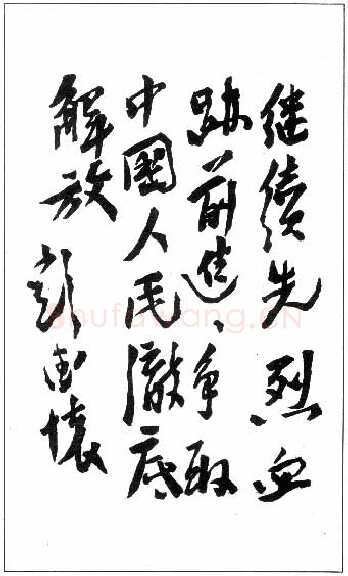 继续先烈血
跡前進、争取
中國人民澈底
解放 彭德懷
shufawang.CN